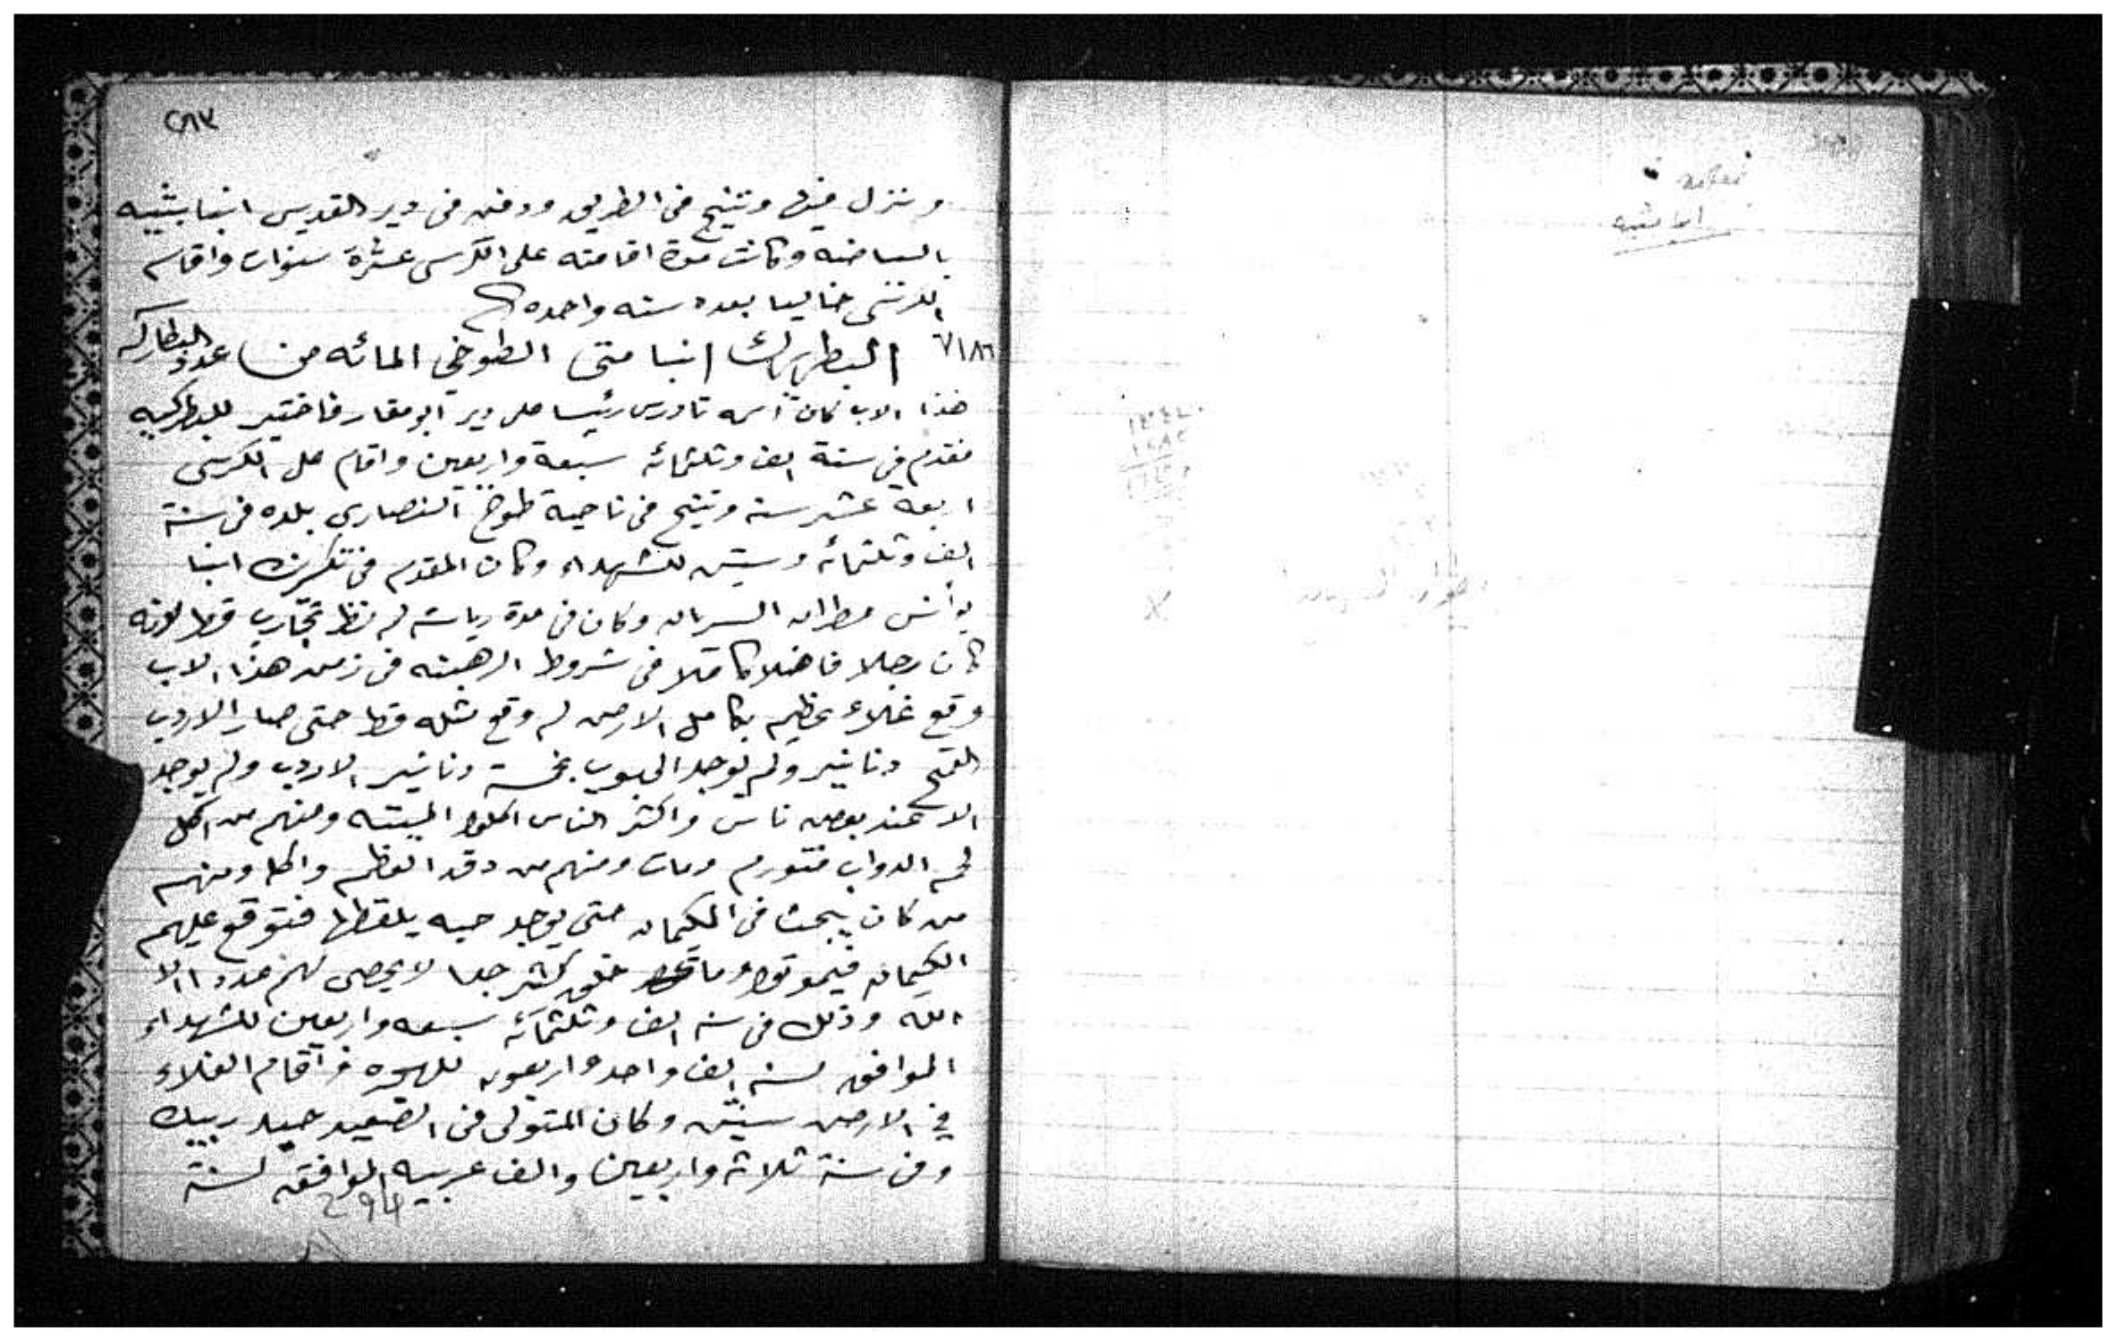 ٢٨٧
ونزل فيها وتنيح فى الطريق ودفن فى دير القديس انبا بشيه
بالسياضه وكانت مدة اقامته على الكرسى عشرة سنوات واقام
الكرسى خاليا بعده سنه واحده
البطريرك انبا متى الطوخي المائه من عدد البطاركه
هذا الاب كان اسمه تادرس رئيسا على دير ابو مقار فاختير للبطركيه
فقدم في سنة الف وتلتمائه سبعة واربعين واقام على الكرسى
اربعة عشر سنه وتنيح فى ناحية طوخ النصارى بلده فى سنة
الف وتلتمائه وستين للشهداء وكان المقدم فى تكريزه انبا
يوأنس مطران السريان وكان فى مدة رياسته لم نظر تجارب قط لانه
كان رجلا فاضلا كاملا فى شروط الرهبنه فى زمن هذا الاب
وقع غلاء عظيم بكامل الارض لم وقع مثله قط حتى صار الاردب
القمح دنانير ولم توجد الحبوب بخمسة دنانير الاردب ولم يوجد
الا عند بعض ناس واكثر الناس اكلوا الميته ومنهم من اكل
لحم الدواب فتورم ومات ومنهم من دقد العظم واكل ومنهم
من كان يبحث فى الكيمان حتى يوجد حبه يلقطها فتوقع عليهم
الكيمان فيموتوا وماتوا خلق كثير جدا لا يحصى لهم عدد الا
الله وذلك فى سنه الف وتلتمائه سبعه واربعين للشهداء
الموافق لسنه الف واحد واربعون للهجره فأقام الغلاء
في الارض سنتين وكان المتولى فى الصعيد حيدر بيك
وفى سنة ثلاثه واربعين والف عربيه الموافقه لسنة
294